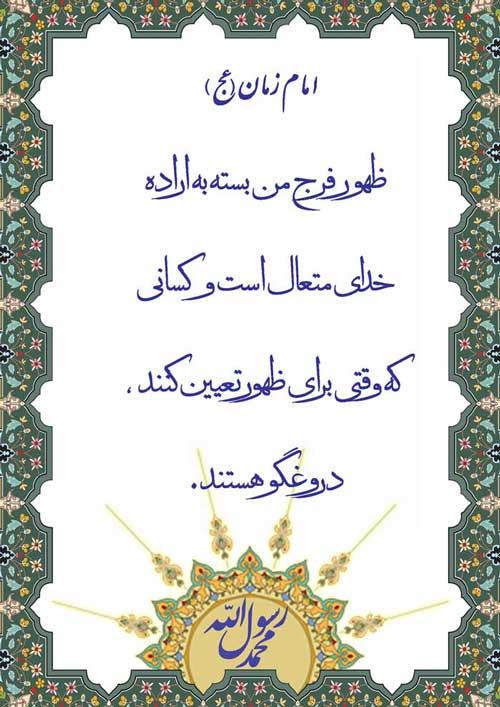 امام زمان (عج)
ظهور فرج من بسته به اراده
خدای متعال است و کسانی
که وقتی برای ظهور تعیین کنند ،
دروغگو هستند.
محمد رسول الله